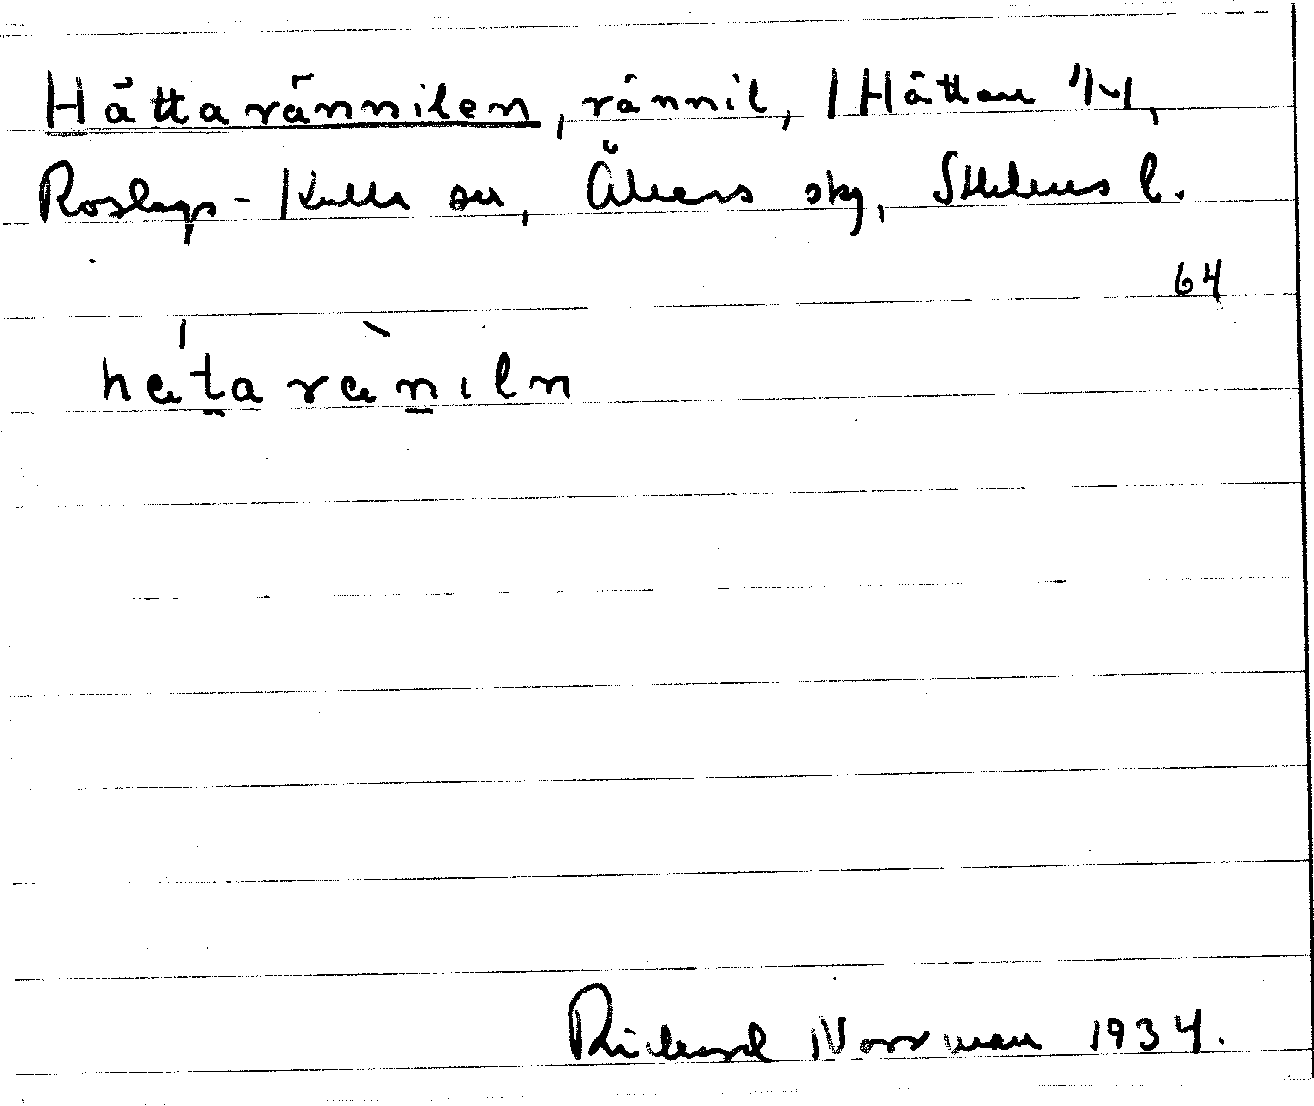 Håttarännilen, rännil, Håttan 1/4,
Roslags-Kulla sn, Åkers skg, Sthlms l.
64
hätaränıln
Richard Norrman 1934.